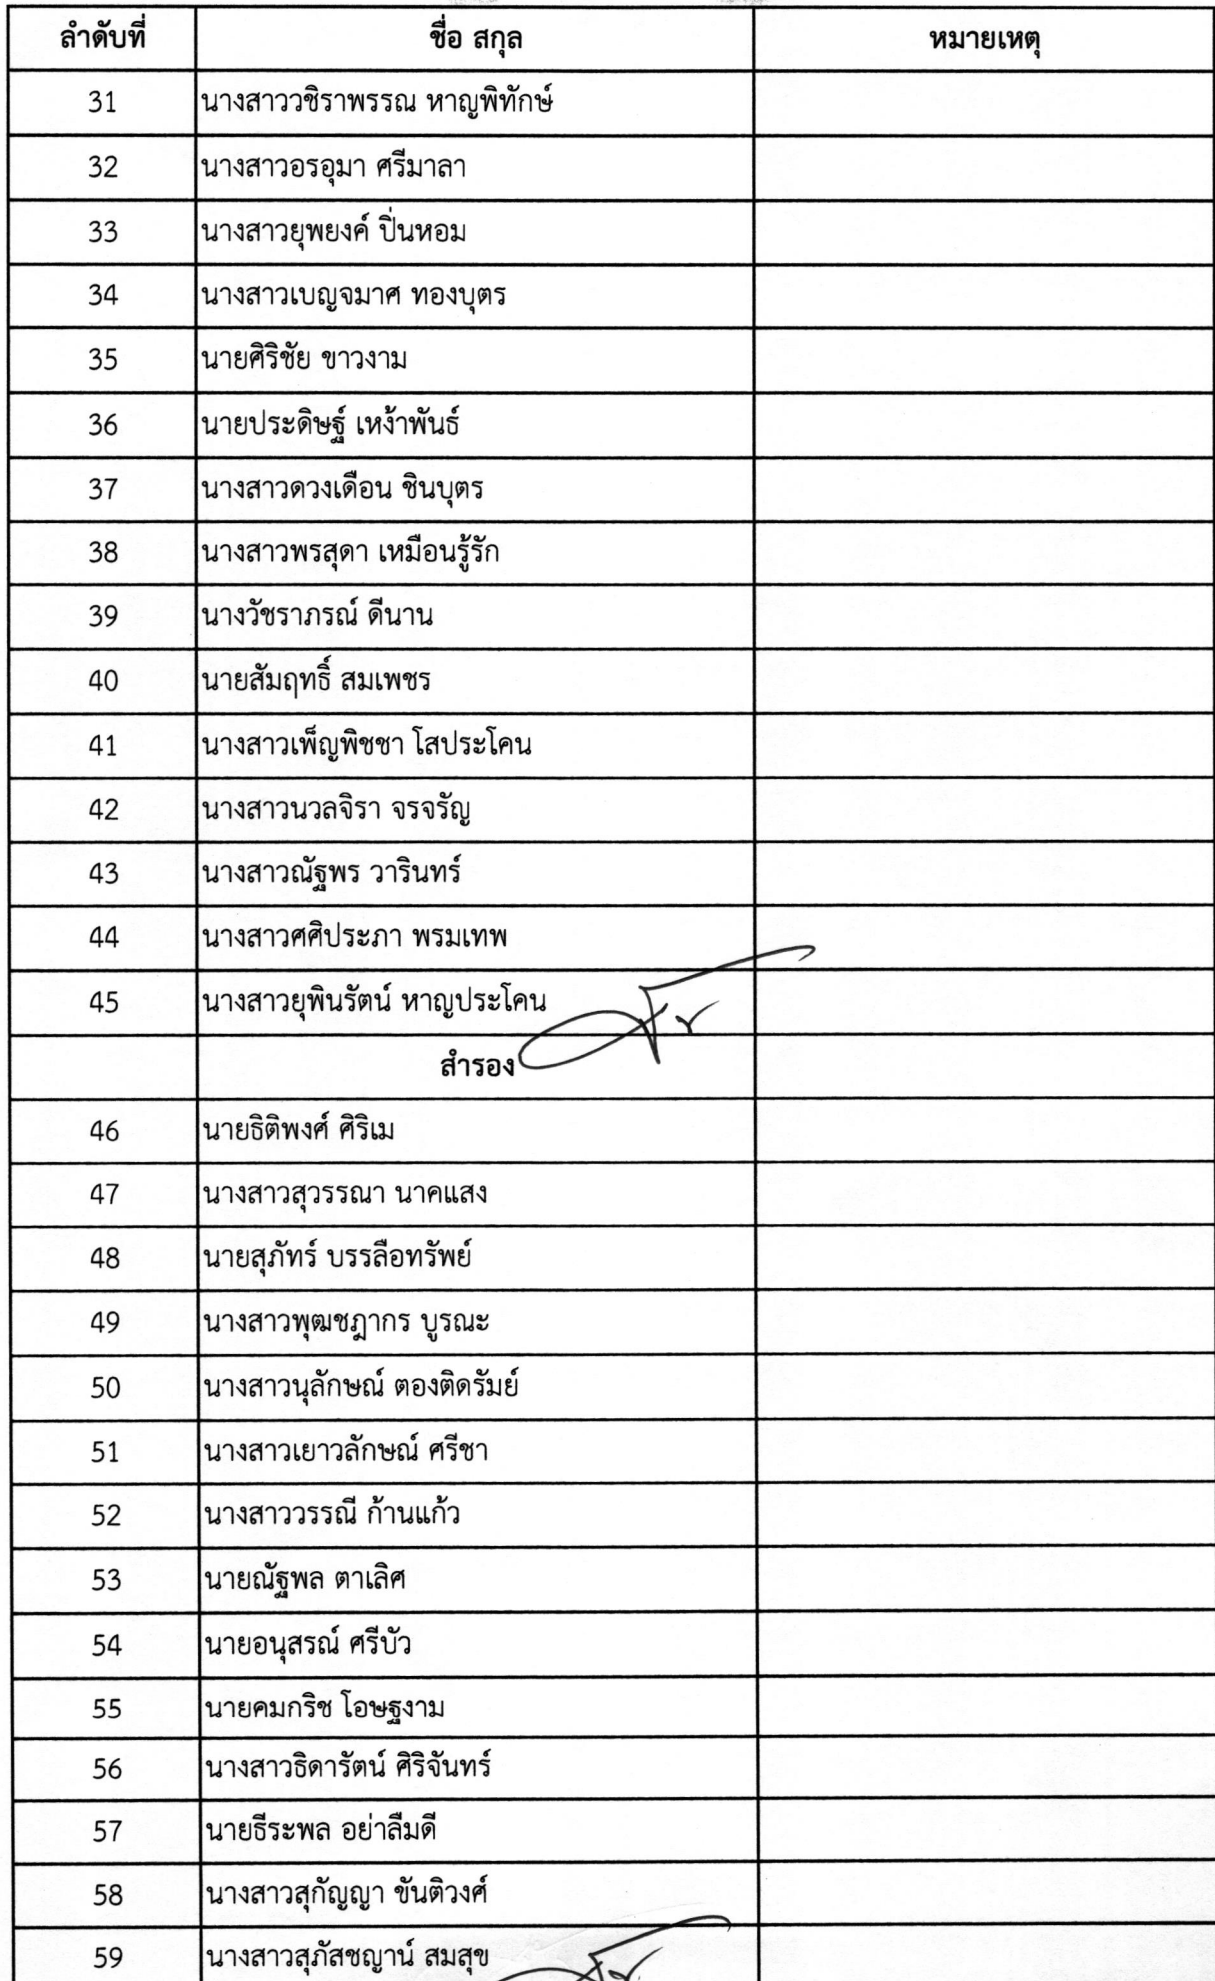 ลำดับที่ ชื่อ สกุล หมายเหตุ
31 นางสาววชิราพรรณ หาญพิทักษ์
32 นางสาวอรอุมา ศรีมาลา
33 นางสาวยุพยงค์ ปิ่นหอม
34 นางสาวเบญจมาศ ทองบุตร
35 นายศิริชัย ขาวงาม
36 นายประดิษฐ์ เหง้าพันธ์
37 นางสาวดวงเดือน ชินบุตร
38 นางสาวพรสุดา เหมือนรู้รัก
39 นางวัชราภรณ์ ดีนาน
40 นายสัมฤทธิ์ สมเพชร
41 นางสาวเพ็ญพิชชา โสประโคน
42 นางสาวนวลจิรา จรจรัญ
43 นางสาวณัฐพร วารินทร์
44 นางสาวศศิประภา พรมเทพ
45 นางสาวยุพินรัตน์ หาญประโคน
สำรอง
46 นายธิติพงศ์ ศิริเม
47 นางสาวสุวรรณา นาคแสง
48 นายสุภัทร์ บรรลือทรัพย์
49 นางสาวพุฒชฎากร บูรณะ
50 นางสาวนุลักษณ์ ตองติดรัมย์
51 นางสาวเยาวลักษณ์ ศรีชา
52 นางสาววรรณี ก้านแก้ว
53 นายณัฐพล ตาเลิศ
54 นายอนุสรณ์ ศรีบัว
55 นายคมกริช โอษฐงาม
56 นางสาวธิดารัตน์ ศิริจันทร์
57 นายธีระพล อย่าลืมดี
58 นางสาวสุกัญญา ขันติวงศ์
59 นางสาวสุภัสชญาน์ สมสุข